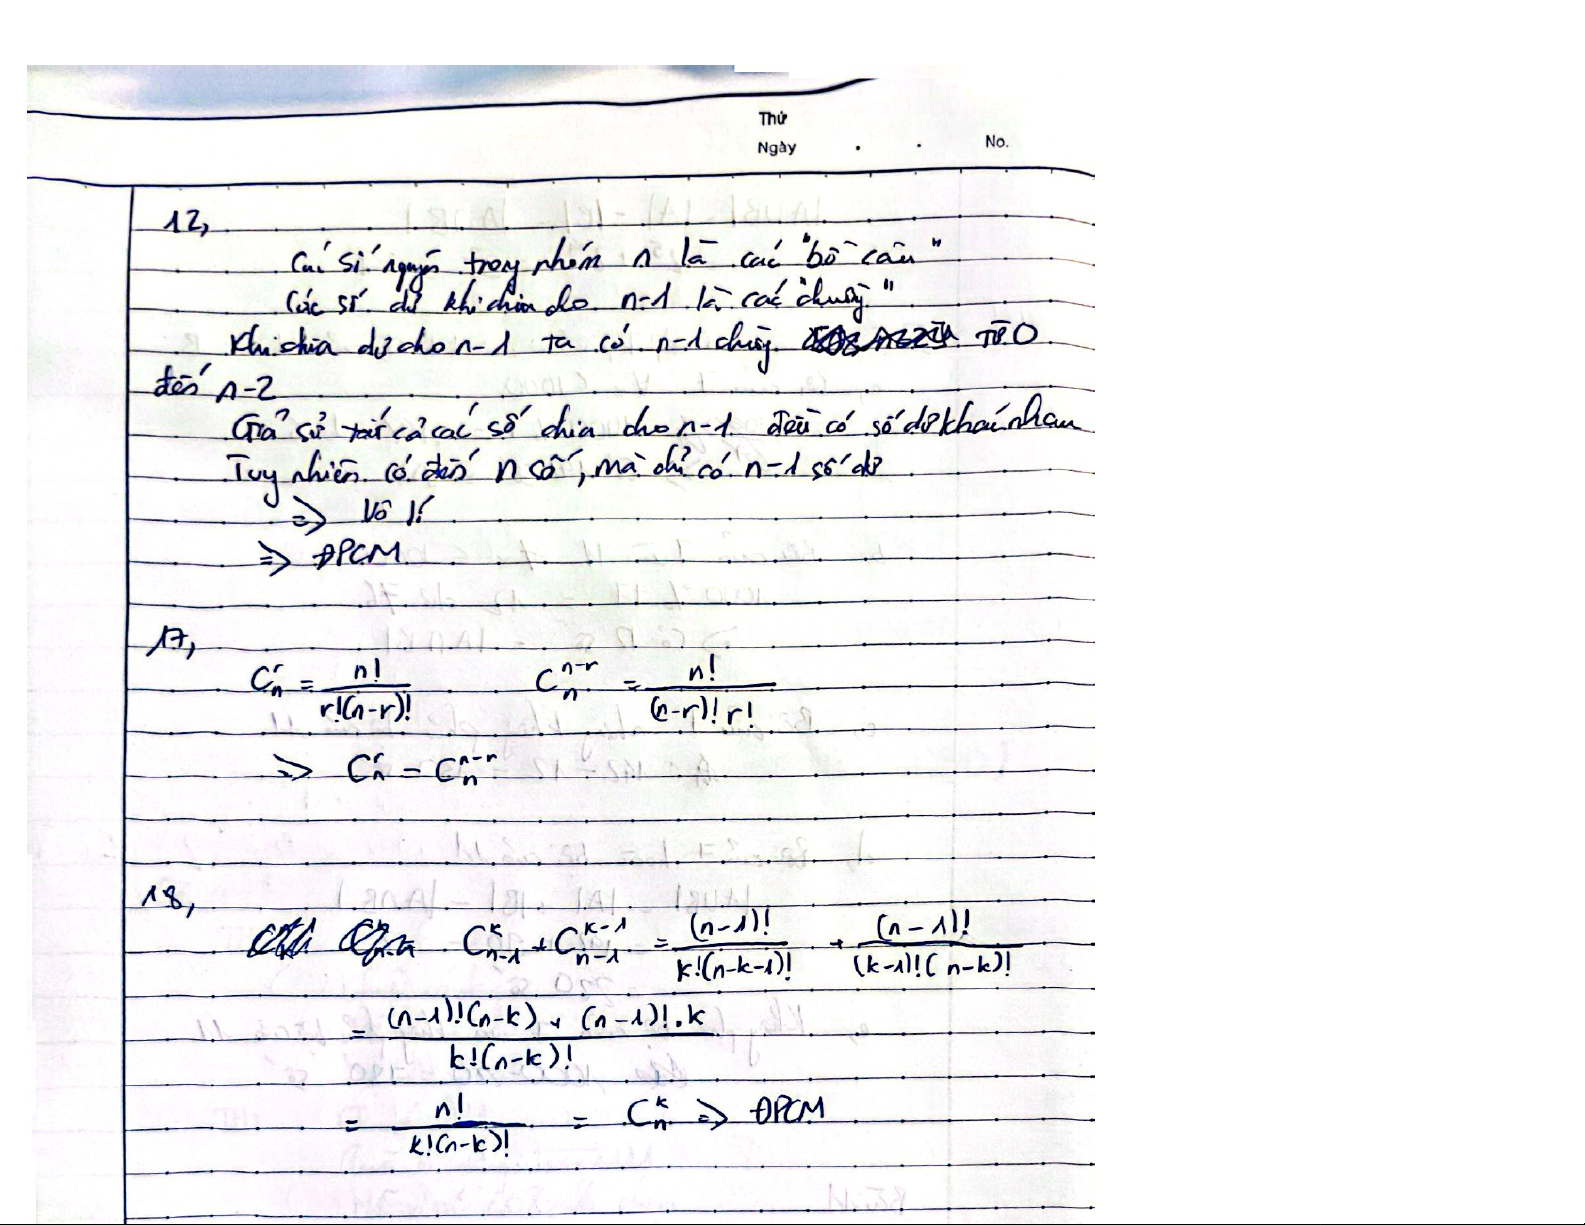 Thứ
Ngày . . No.
12,
Các số nguyên trong nhóm n là các "bồ câu"
Các số dư khi chia cho n-1 là các "chuồng"
Khi chia dư cho n-1 ta có n-1 chuồng Từ 0
đến n-2
Giả sử tất cả các số chia cho n-1 đều có số dư khác nhau
Tuy nhiên có đến n số, mà chỉ có n-1 số dư
=> Vô lí
=> ĐPCM
17,
C_n^r = n!/(r!(n-r)!) C_n^{n-r} = n!/((n-r)!r!)
=> C_n^r = C_n^{n-r}
18,
C_{n-1}^k + C_{n-1}^{k-1} = (n-1)!/(k!(n-k-1)!) + (n-1)!/((k-1)!(n-k)!)
= ((n-1)!(n-k) + (n-1)!.k)/(k!(n-k)!)
= n!/(k!(n-k)!) = C_n^k => ĐPCM